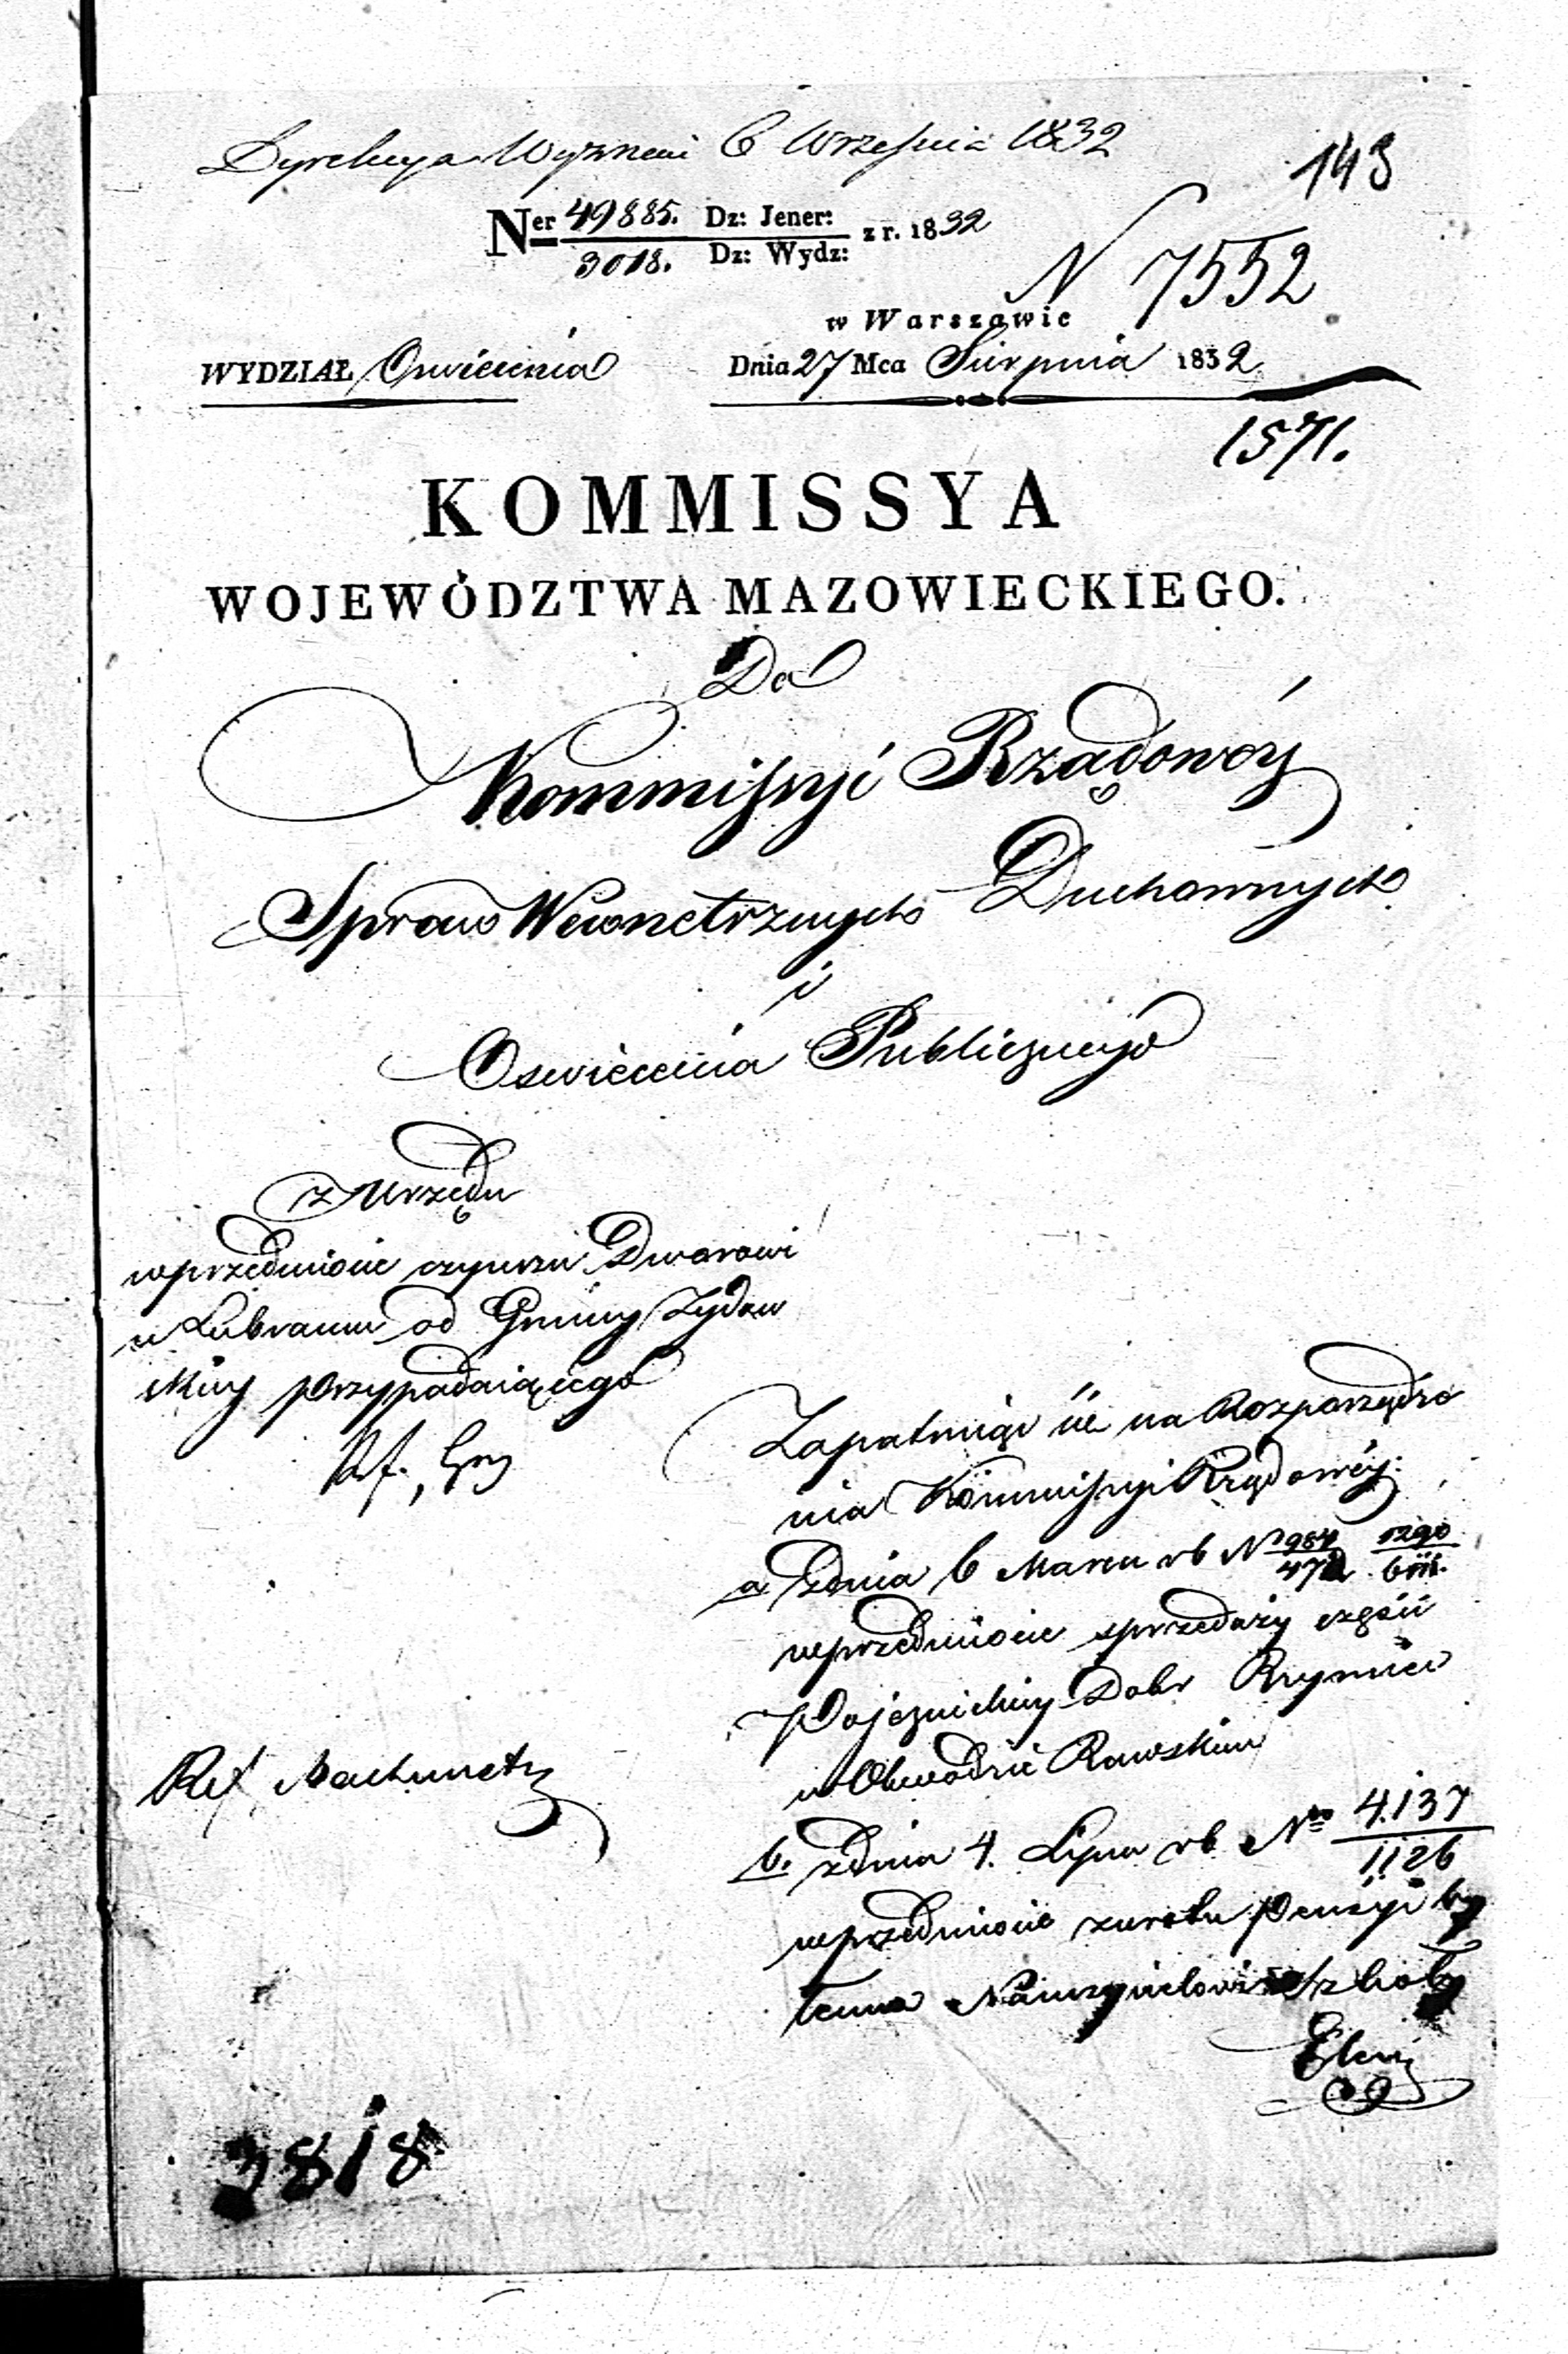 Dyrekcya Wyznań 6 Września 1832
143
Ner 49885. Dz: Jener: z r. 1832
3018. Dz: Wydz:
N 7552
w Warszawie
WYDZIAŁ Oświecenia Dnia 27 Mca Sierpnia 1832
1571.
KOMMISSYA
WOJEWÓDZTWA MAZOWIECKIEGO.
Do
Kommissyi Rządowéy
Spraw Wewnetrznych Duchownych
i
Oswiecenia Publicznego
z Urzędu
wprzedmiocie czynszu Dworowi
w Lubraniu od Gminy Żydow
skiey przypadaiącego
Zapatruiąc się na Rozporządze
nia Kommissyi Rządowéy:
a z dnia 6 Marca rb N 984
wprzedmiocie sprzedaży części
Pojezuickiey Dobr
w Obwodzie Rawskim
b. z dnia 4. Lipca rb No 4137
1126
wprzedmiocie zwrotu Pensyi by
łemu Nauczycielowi Szkoły
Ref
3818